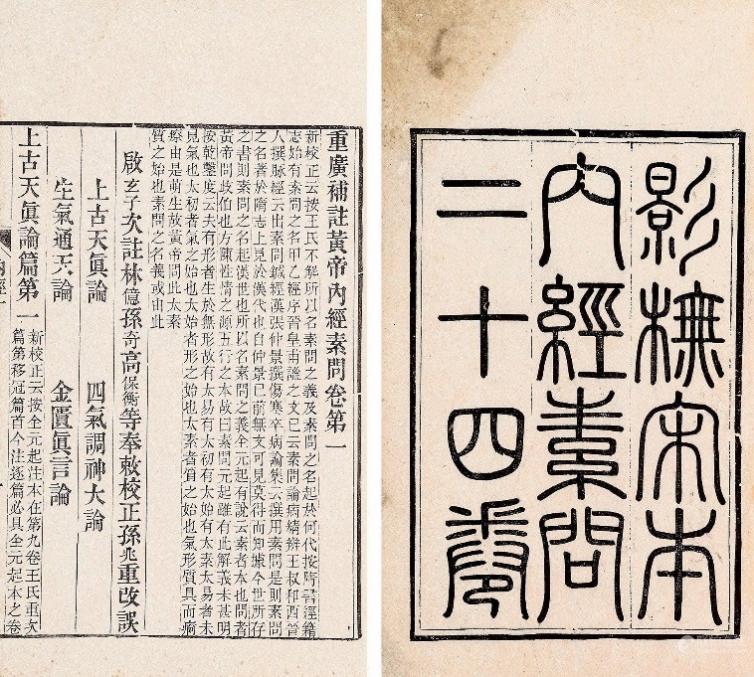 影橅宋本
內經素問
二十四卷
重廣補註黃帝內經素問卷第一
新校正云按王氏不解所以名素問之義及素問之名起於何代按隋書經籍
志始有素問之名甲乙經序晉皇甫謐之文已云素問論病精辨王叔和西晉
人撰脉經云出素問鍼經漢張仲景撰傷寒卒病論集云撰用素問是則素問
之名著於隋志上見於漢代也自仲景已前無文可見莫得而知據今世所存
之書則素問之名起漢世也所以名素問之義全元起有說云素者本也問者
黃帝問歧伯也方陳性情之源五行之本故曰素問元起雖有此解義未甚明
按乾鑿度云夫有形者生於無形故有太易有太初有太始有太素太易者未
見氣也太初者氣之始也太始者形之始也太素者質之始也氣形質具而痾
瘵由是萌生故黃帝問此太素
質之始也素問之名義或由此
啟玄子次註林億孫奇高保衡等奉敕校正孫兆重改誤
上古天眞論 四氣調神大論
生氣通天論 金匱眞言論
上古天眞論篇第一
新校正云按全元起注本在第九卷王氏重次
篇第移冠篇首今注逐篇必具全元起本之卷
內經一